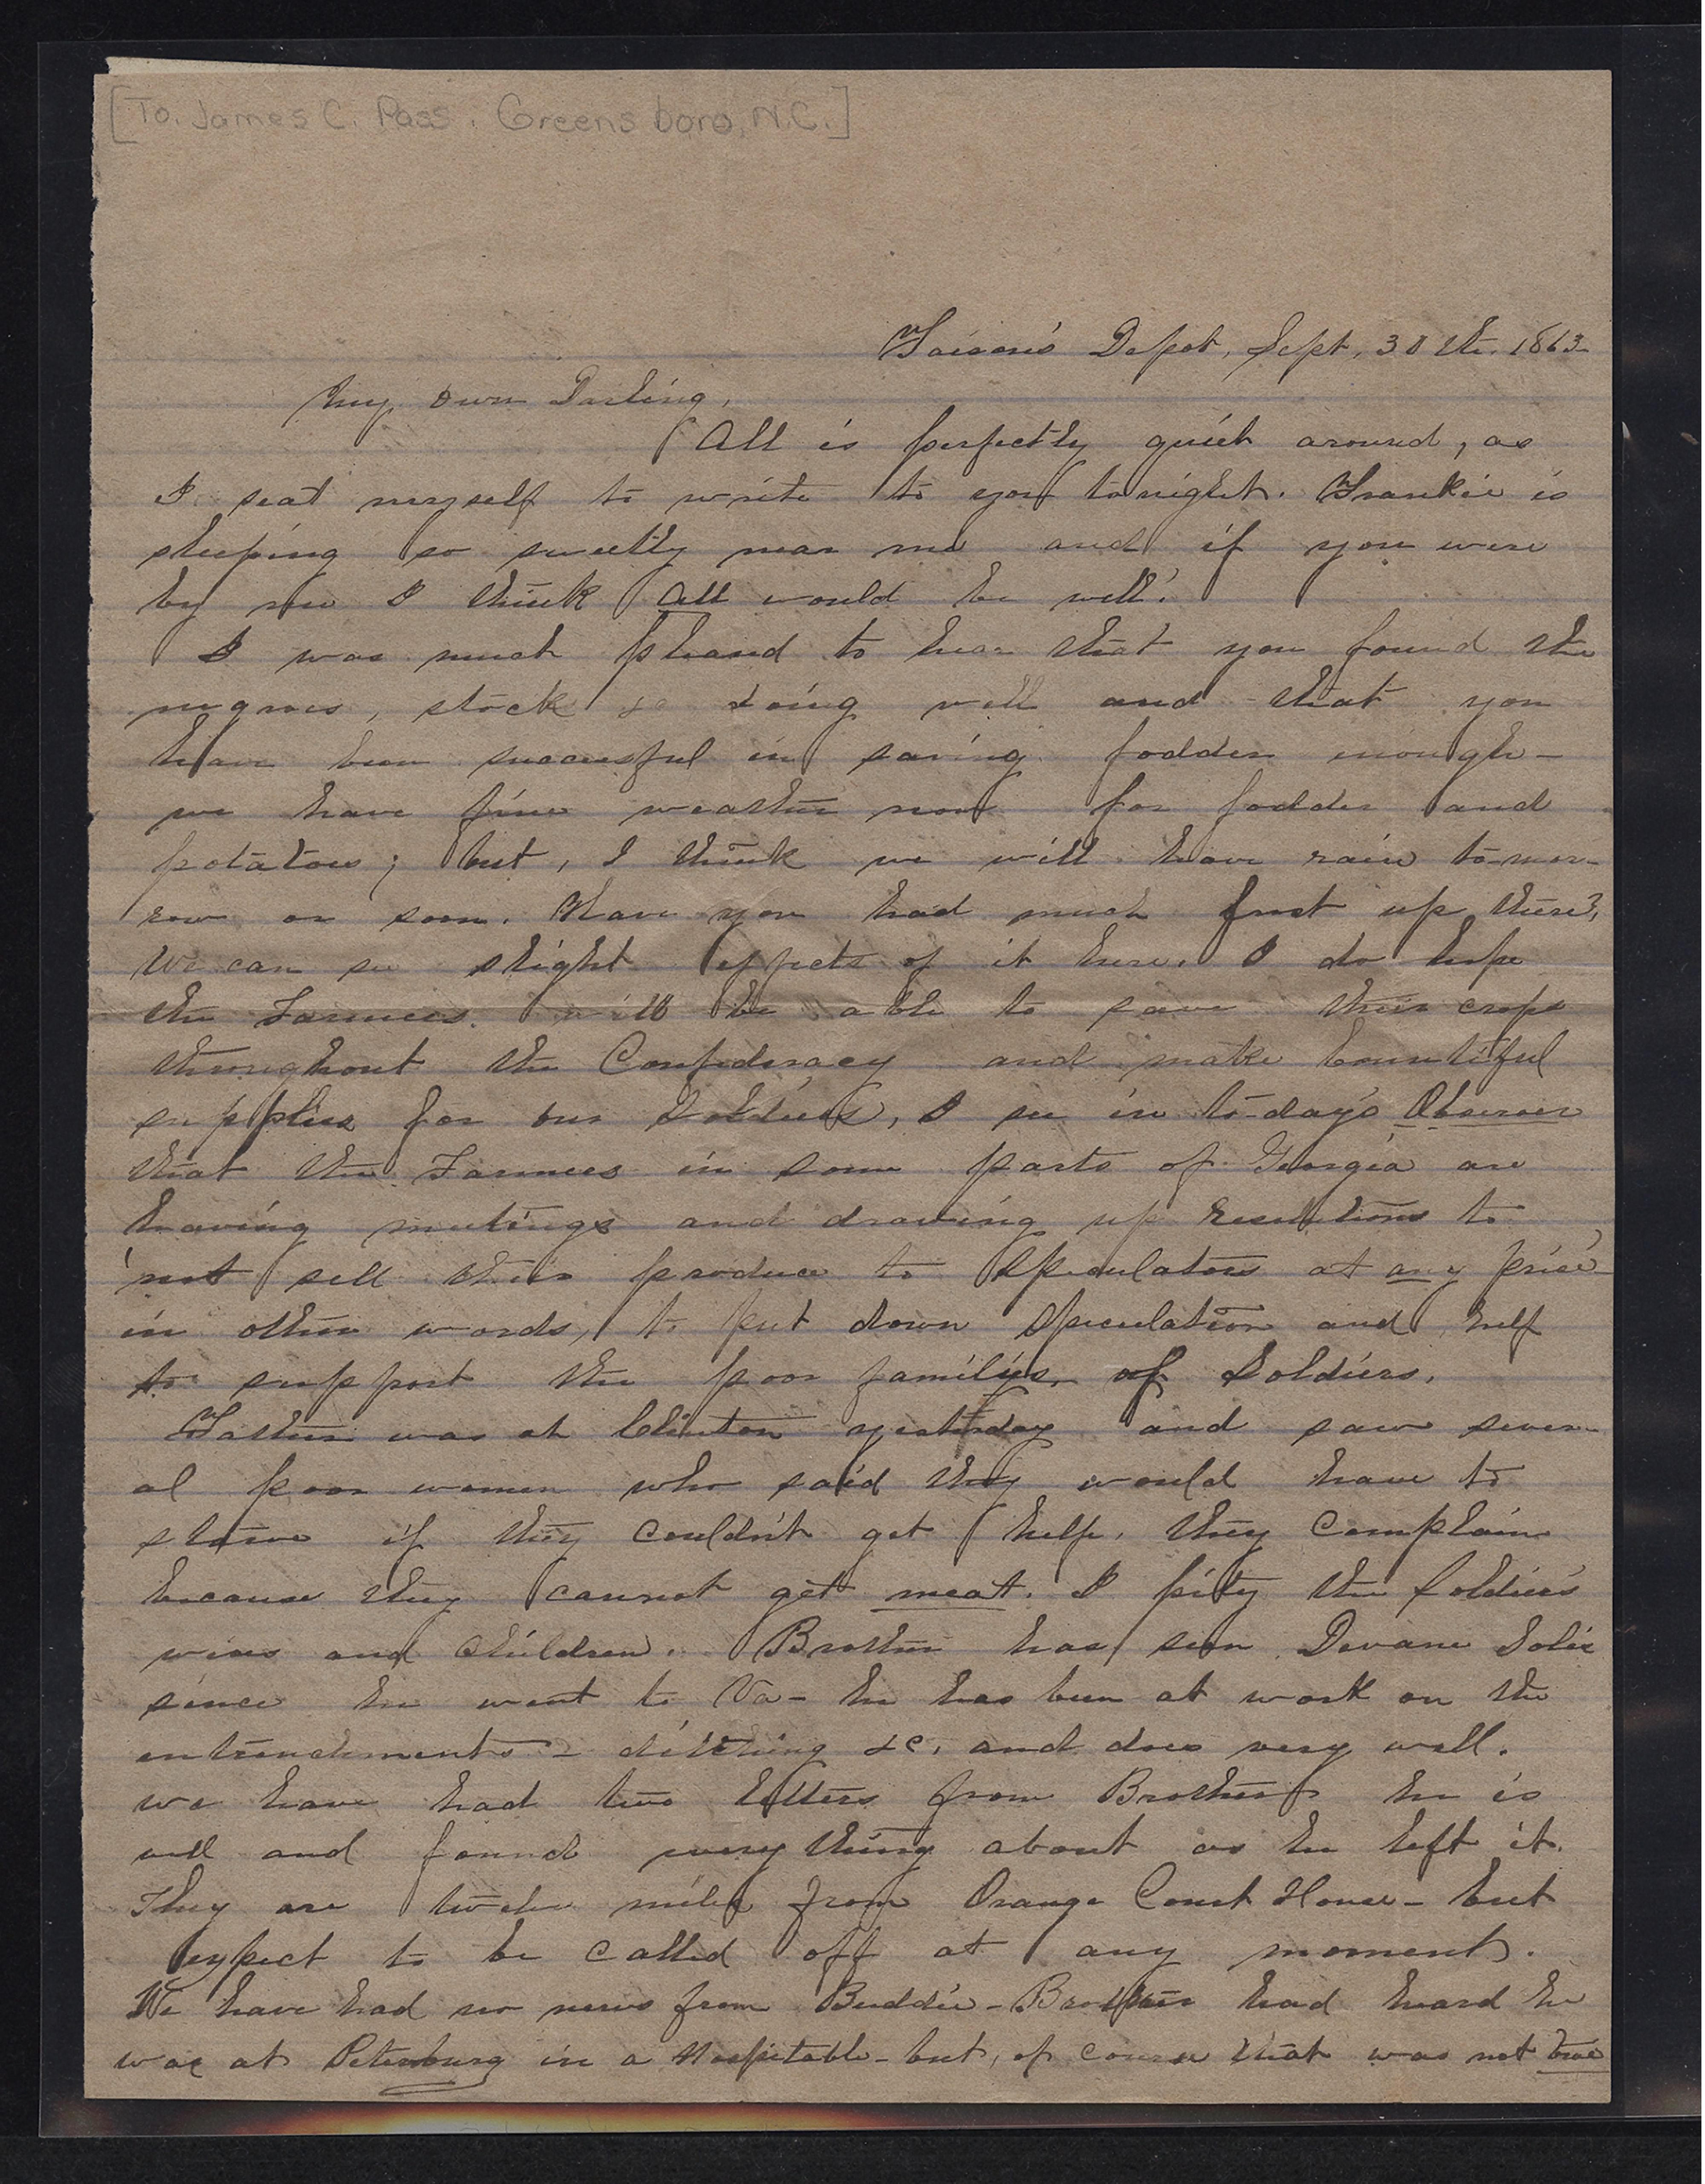 [To. James C. Pass. Greensboro, N.C.]
Faison's Depot, Sept, 30th. 1863
My own Darling,
All is perfectly quiet around, as
I seat myself to write to you to night. Frankie is
sleeping so sweetly near me and if you were
by me I think all would be well.
I was much pleased to hear that you found the
negroes, stock &c doing well and that you
have been successful in saving fodder enough—
we have fine weather now for fodder and
potatoes; but, I think we will have rain to-mor-
row or soon. Have you had much frost up there?
We can see slight effects of it here. I do hope
the Farmers will be able to save their crops
throughout the Confederacy and make bountiful
supplies for our Soldiers, I see in to-day's Observer
that the Farmers in some parts of Georgia are
having meetings and drawing up resolutions to
'not sell their produce to Speculators at any price'
in other words, to put down Speculation and help
to support the poor families of Soldiers.
Father was at Clinton yesterday and saw sever-
al poor women who said they would have to
starve if they couldn't get help. they complain
because they cannot get meat. I pity the Soldier's
wives and children. Brother has seen Devane
since he went to Va— he has been at work on the
entrenchments— ditching &c. and does very well.
we have had two letters from Brother he is
well and found every thing about as he left it.
They are twelve miles from Orange Court House— but
expect to be called off at any moment.
We have had no news from Buddie— Brother had heard he
was at Petersburg in a Hospitable— but, of course that was not true